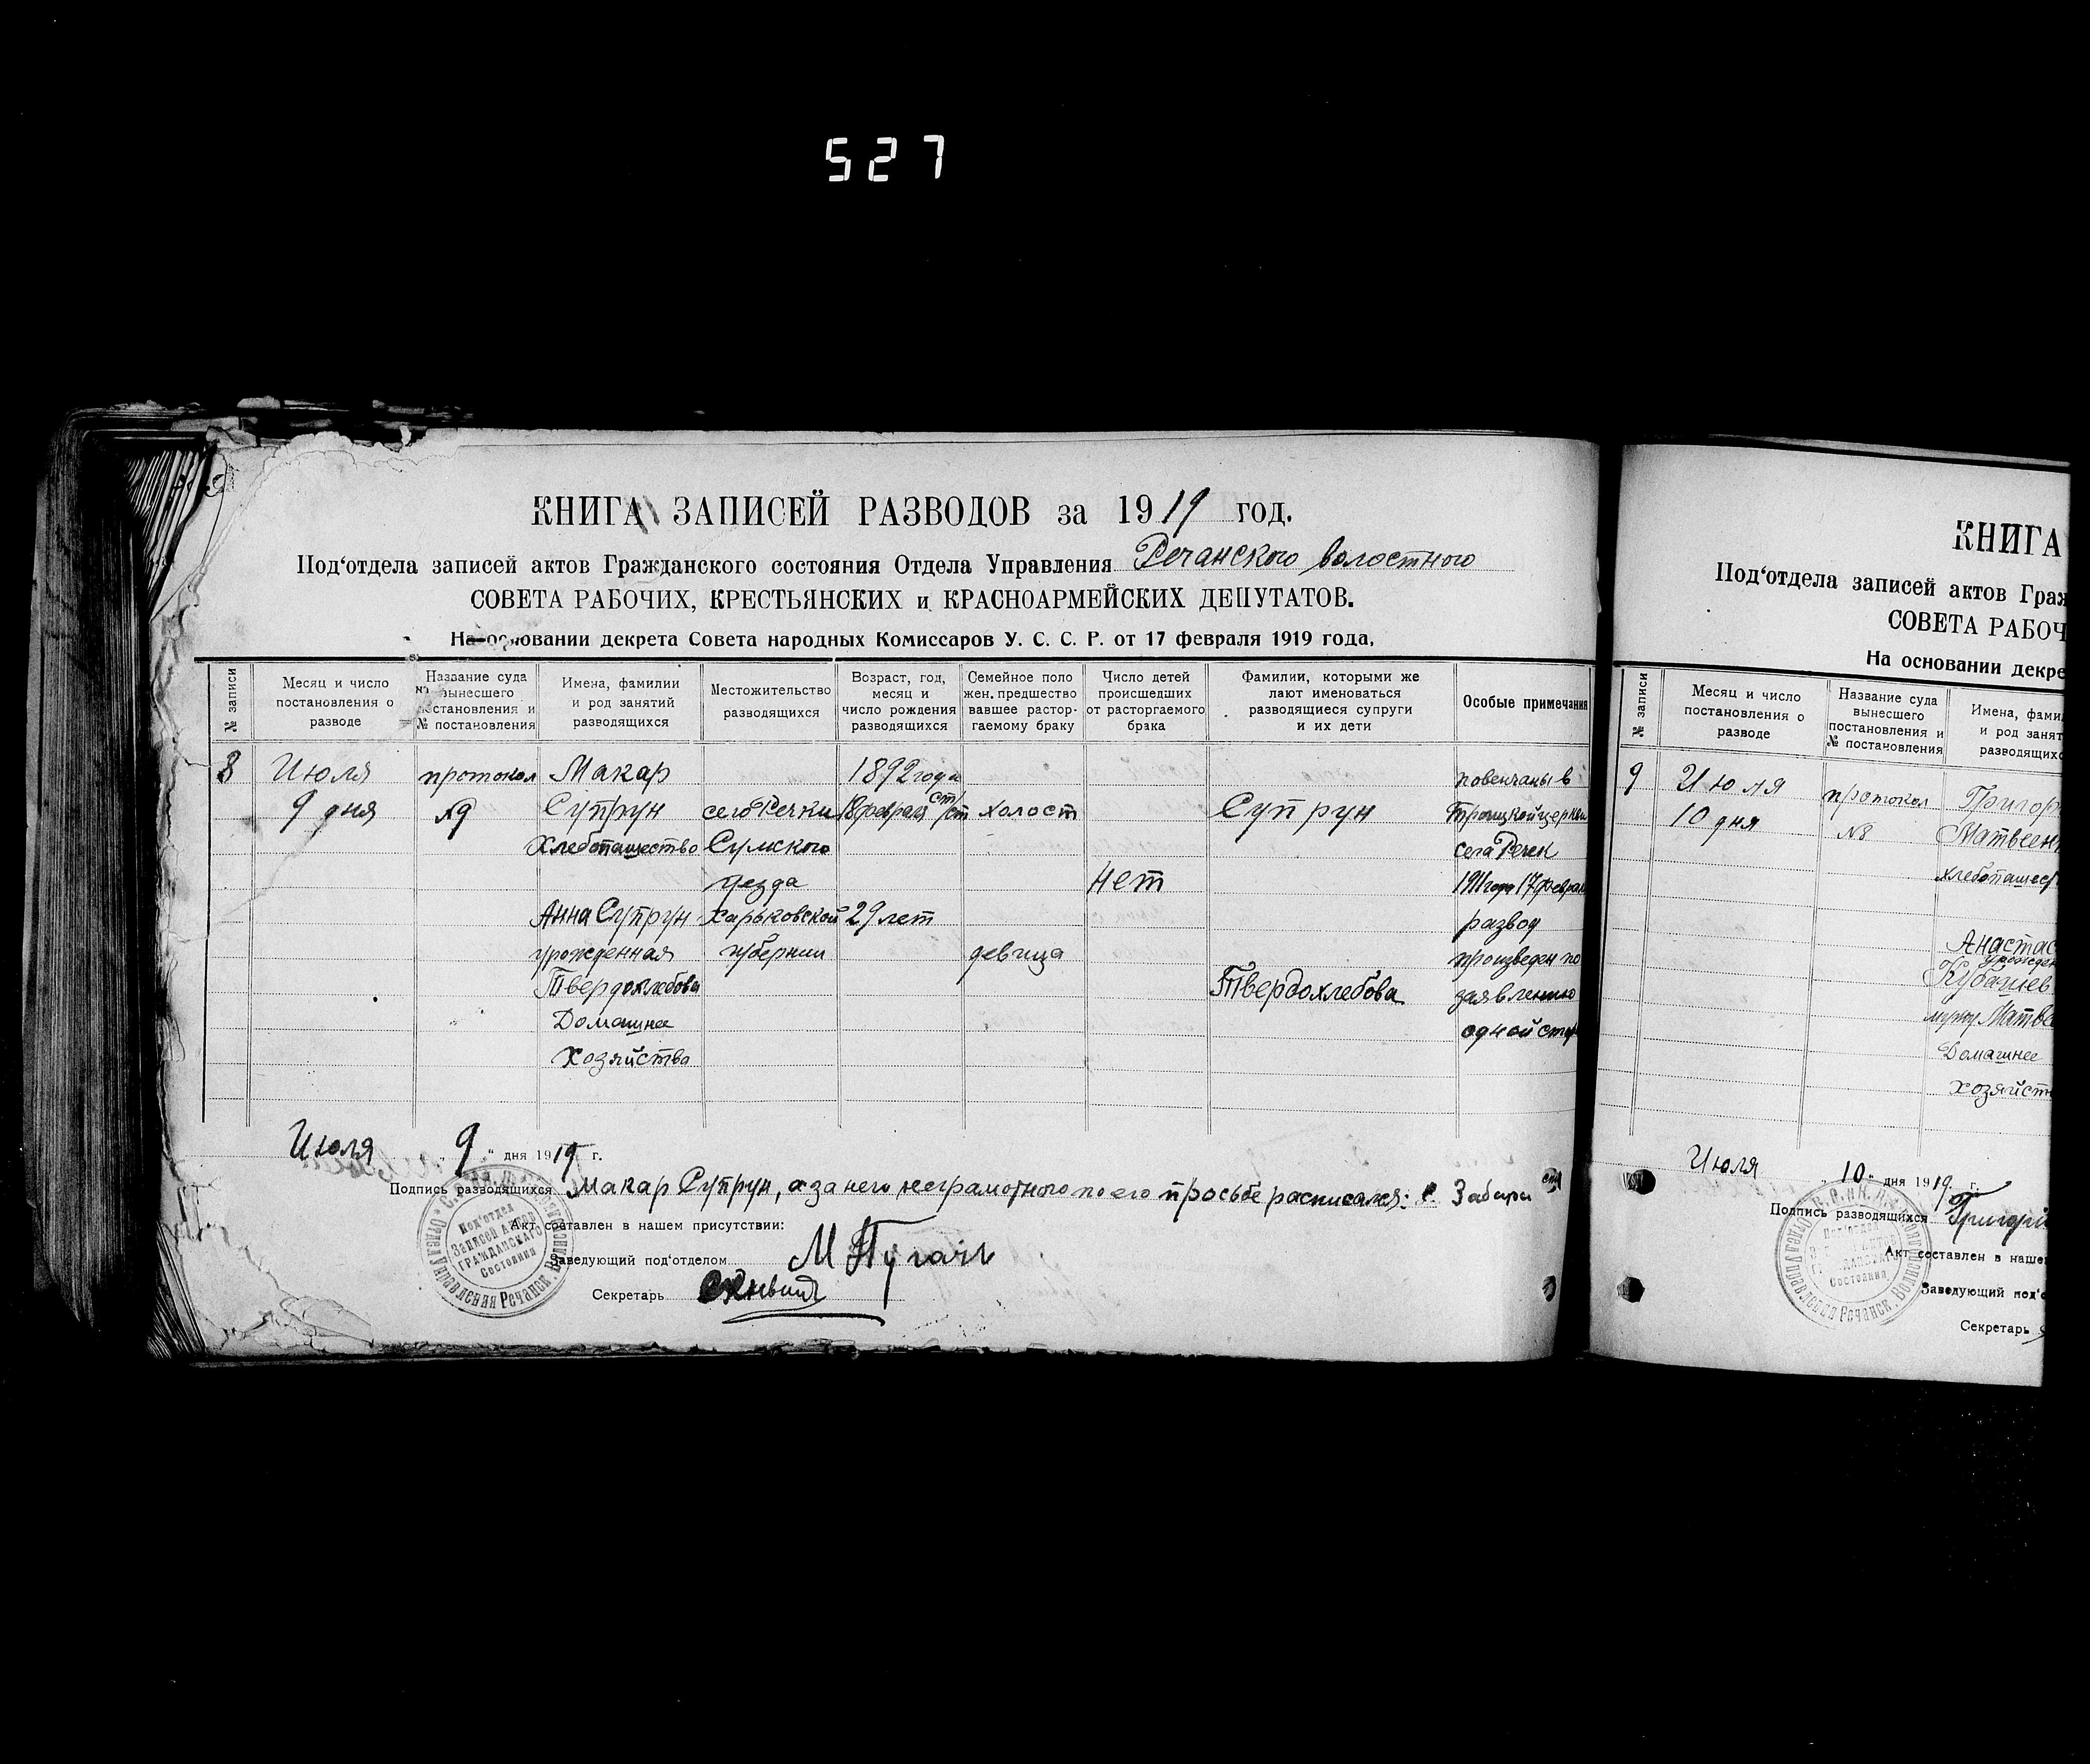 527
КНИГА ЗАПИСЕЙ РАЗВОДОВ за 1919 год.
Под‘отдела записей актов Гражданского состояния Отдела Управления Речанского волостного
СОВЕТА РАБОЧИХ, КРЕСТЬЯНСКИХ и КРАСНОАРМЕЙСКИХ ДЕПУТАТОВ.
На основании декрета Совета народных Комиссаров У. С. С. Р. от 17 февраля 1919 года.
№ записи
Месяц и число
постановления о
разводе
Название суда
вынесшего
постановления и
№ постановления
Имена, фамилии
и род занятий
разводящихся
Местожительство
разводящихся
Возраст, год,
месяц и
число рождения
разводящихся
Семейное поло
жен. предшество
вавшее растор-
гаемому браку
Число детей
происшедших
от расторгаемого
брака
Фамилии, которыми же
лают именоваться
разводящиеся супруги
и их дети
Особые примечания
8
Июля
9 дня
протокол
№9
Макар
Супрун
Хлебопашество
Анна Супрун
урожденная
Твердохлебова
Домашнее
хозяйство
село Речки
Сумского
уезда
Харьковской
губернии
1892 года
18 февраля ст/ст
29 лет
холост
девица
нет
Супрун
Твердохлебова
повенчаны в
Троицкой церкви
села Речек
1911 года 17 феврал
развод
произведен по
заявлению
одной стор
Июля „ 9 “ дня 1919 г.
Подпись разводящихся Макар Супрун, а за него неграмотного по его просьбе расписался:
Акт составлен в нашем присутствии:
Заведующий под‘отделом М Пугач
Секретарь
Под‘отдел
Записей Актов
ГРАЖДАНСКОГО
Состояния
Отдел Управления Речанск. Волисп
КНИГА
Под‘отдела записей актов Граж
СОВЕТА РАБОЧ
На основании декре
№ записи
Месяц и число
постановления о
разводе
Название суда
вынесшего
постановления и
№ постановления
Имена, фамил
и род занят
разводящихс
9
Июля
10 дня
протокол
№8
Григор
Матвеен
хлебопашес
Анастас
урожден
мужу Матве
Домашнее
хозяйств
Июля „ 10 “ дня 1919 г.
Подпись разводящихся Григорі
Акт составлен в наше
Заведующий под‘о
Секретарь
Состояния
Отдел Управления Речанск. Волисп